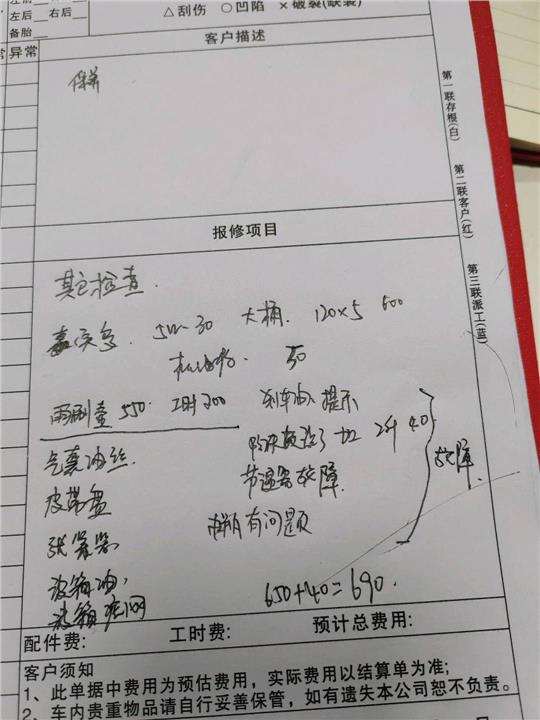 左后 右后
△刮伤 ○凹陷 ×破裂(缺装)
备胎
异常
客户描述
保养
第一联存根(白)
第二联客户(红)
第三联派工(蓝)
报修项目
其它检查.
嘉实多. 5W-30 大桶. 120×5 600
机油格. 50
雨刮壶 550. 工时200 刹车油 提示
防冻液 加 2升 40
气囊油丝 节温器故障 故障.
皮带盘
有问题
涨紧器
波箱油.
650+40=690.
波箱
配件费: 工时费: 预计总费用:
客户须知
1、此单据中费用为预估费用，实际费用以结算单为准;
2、车内贵重物品请自行妥善保管，如有遗失本公司恕不负责。